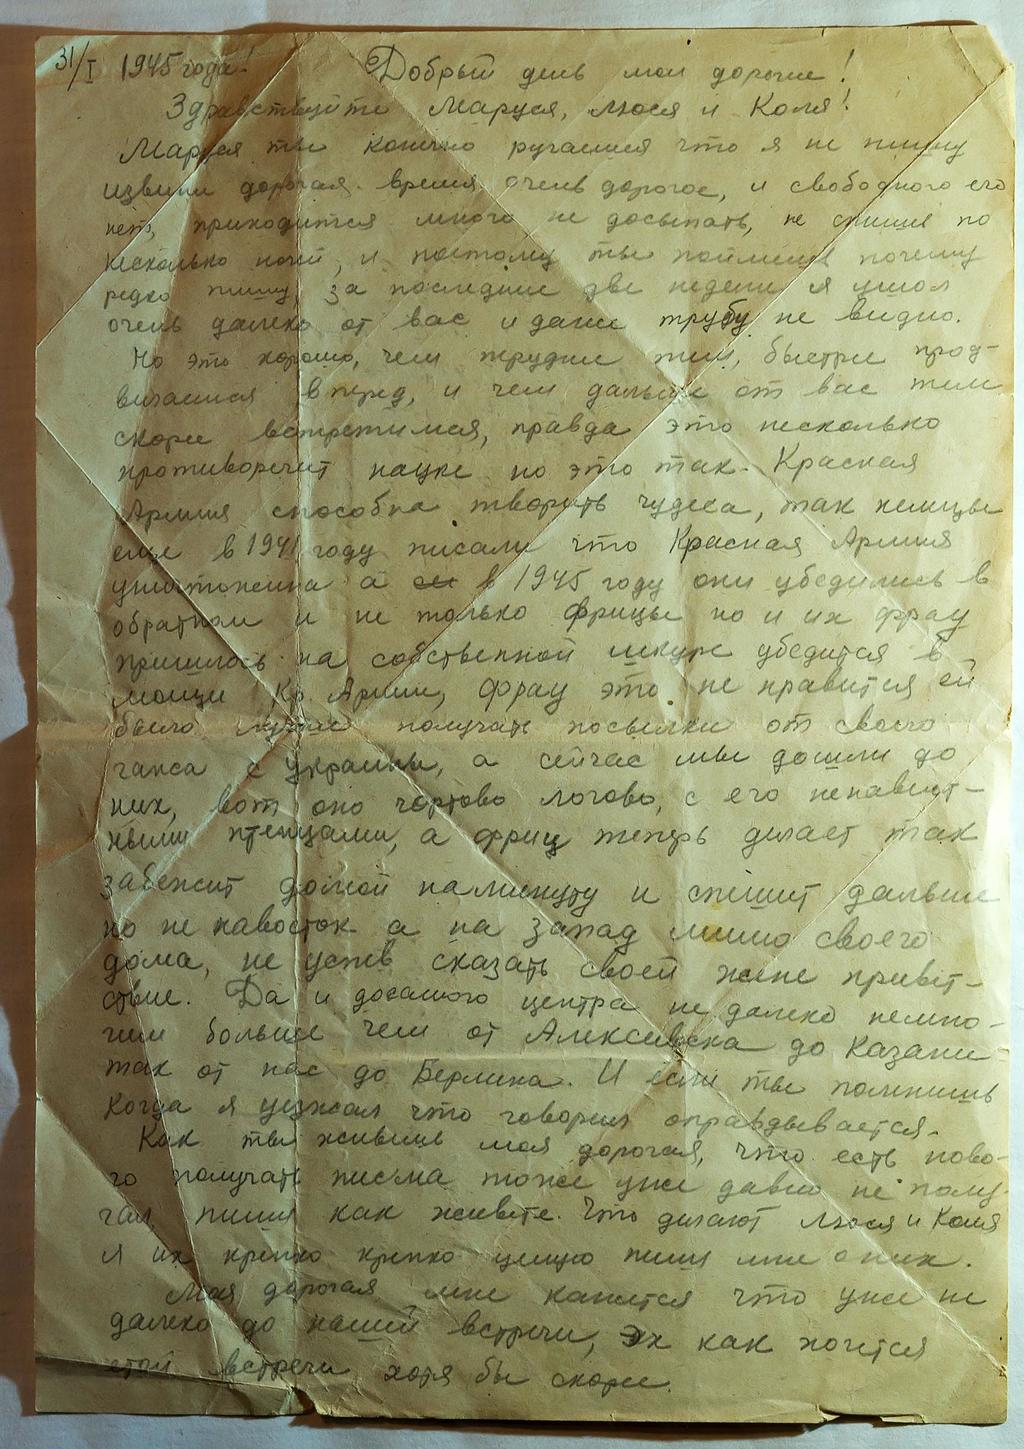 31/I 1945 года! Добрый день мои дорогие!
Здравствуйте Маруся, Люся и Коля!
Маруся ты конечно ругаешся что я не пишу
извини дорогая время очень дорогое, и свободного его
нет, приходится много не досыпать, не спишь по
несколько ночей, и поэтому ты поймешь почему
редко пишу, за последние две недели я ушол
очень далеко от вас и даже трубу не видно.
Но это хорошо, чем труднее тем, быстрее прод-
вигаемся вперед, и чем дальше от вас тем
скорее встретимся, правда это несколько
противоречит науке но это так. Красная
Армия способна творить чудеса, так немцы
еще в 1941 году писали что Красная Армия
уничтоженна а в 1945 году они убедились в
обратном и не только фрицы но и их фрау
пришлось на собственной шкуре убедится в
мощи Кр. Армии, фрау это не нравится ей
было лучше получать посылки от своего
ганса с украины, а сейчас мы дошли до
них, вот оно чортово логово, с его ненавист-
ными птенцами, а фриц теперь делает так
забежит домой наминуту и спешит дальше
но не навосток а на запад мимо своего
дома, не успев сказать своей жене приветс-
твие. Да и досамого центра не далеко немно-
гим больше чем от Алексеевска до Казани
так от нас до Берлина. И если ты помнишь
когда я уезжал что говорил оправдывается.
Как ты живешь моя дорогая, что есть ново-
го получать писма тоже уже давно не полу-
чал, пиши как живете. Что делают Люся и Коля
я их крепко крепко целую пиши мне о них.
Моя дорогая мне кажется что уже не
далеко до нашей встречи, эх как хочется
этой встречи хотя бы скорее.